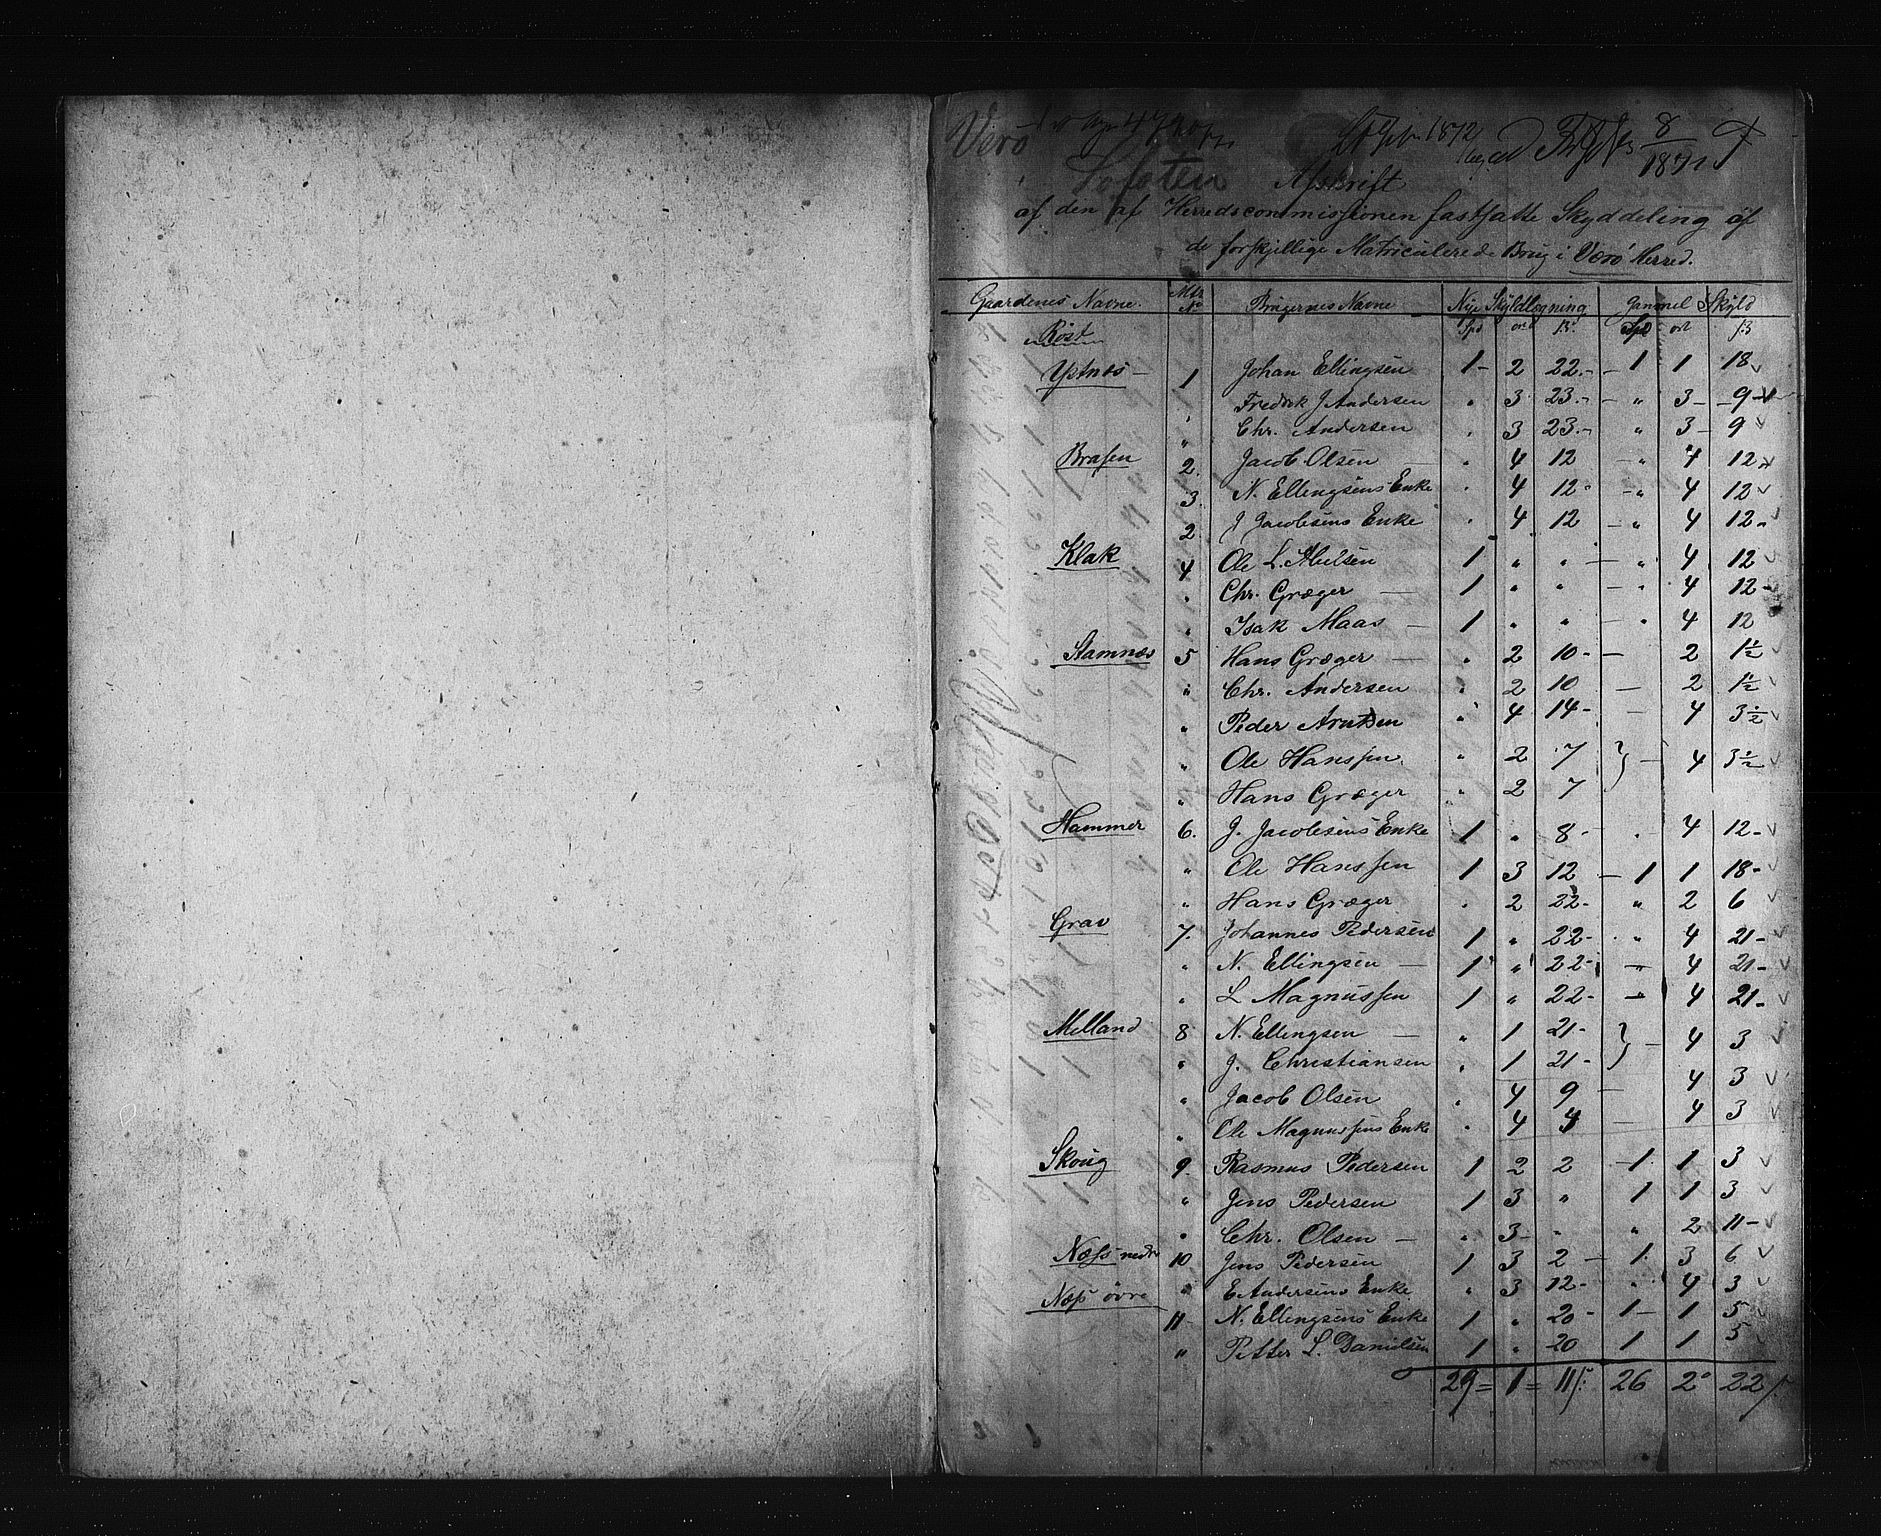 Værö
Lofoten Afskrift
af den af Herredscommissionen fastsatte Skylddeling af
de forskjellige Matriculerede Brug i Værö Herred.
Gaardenes Navne. Mtr No Brugernes Navne Nye Skyldlægning Gammel Skyld
Röst Spd ort ß Spd ort ß
Ystnæs 1 Johan Ellingsen 1 2 22 1 1 18
" Fredrik J Andersen " 3 23 " 3 9
" Chr. Andersen " 3 23 " 3 9
Brasen 2 Jacob Olsen " 4 12 " 4 12
3 N. Ellingsens Enke " 4 12 " 4 12
2 J Jacobsens Enke " 4 12 " 4 12
Klak 4 Ole L. 1 " " " 4 12
" Chr. Græger 1 " " " 4 12
" Isak Maas 1 " " " 4 12
Stamnæs 5 Hans Græger " 2 10 2 1½
" Chr. Andersen " 2 10 2 1½
" Peder Arntsen " 4 14 4 3½
" Ole Hanssen " 2 7 } 4 3½
" Hans Græger " 2 7
Hammer 6. J. Jacobsens Enke 1 " 8 " 4 12
" Ole Hanssen 1 3 12 1 1 18
" Hans Græger " 2 22 " 2 6
Grav 7. Johannes Pedersen 1 " 22 " 4 21
" N. Ellingsen 1 " 22 4 21
" L Magnussen 1 " 22 4 21
Melland 8 N. Ellingsen " 1 21 } 4 3
" J. Christiansen " 1 21
" Jacob Olsen " 4 9 4 3
" Ole Magnussens Enke " 4 4 3
Skoug 9. Rasmus Pedersen 1 2 2 1 1 3
" Jens Pedersen 1 3 " 1 1 3
" Chr. Olsen " 3 " " 2 11
Næss nedre 10 Jens Pedersen 1 3 2 1 3 6
" E Andersens Enke " 3 12 " 4 3
Næss övre 11 N. Ellingsens Enke 1 " 20 1 1 5
" Petter L. Danielsen 1 " 20 1 1 5
29 = 1 = 11 ß 26 2 22